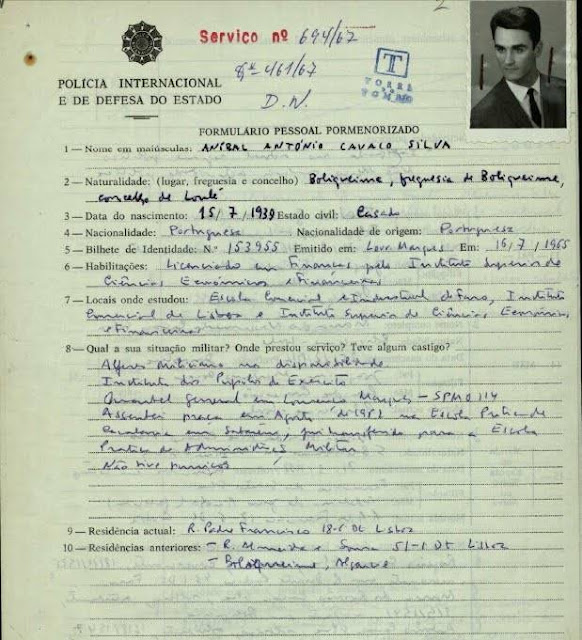 Serviço nº 694/67
461/67
D.N.
T
POLÍCIA INTERNACIONAL
E DE DEFESA DO ESTADO
FORMULÁRIO PESSOAL PORMENORIZADO
1 — Nome em maiúsculas: ANÍBAL ANTÓNIO CAVACO SILVA
2 — Naturalidade: (lugar, freguesia e concelho) Boliqueime, freguesia de Boliqueime,
concelho de Loulé
3 — Data do nascimento: 15/7/1939 Estado civil: Casado
4 — Nacionalidade: Portuguesa Nacionalidade de origem: Portuguesa
5 — Bilhete de Identidade: N.º 153955 Emitido em: Lour. Marques Em: 16/7/1965
6 — Habilitações: Licenciado em Finanças pelo Instituto Superior de
Ciências Económicas e Financeiras
7 — Locais onde estudou: Escola Comercial e Industrial de Faro, Instituto
Comercial de Lisboa e Instituto Superior de Ciências Económicas
e Financeiras
8 — Qual a sua situação militar? Onde prestou serviço? Teve algum castigo?
Alferes miliciano na disponibilidade
Instituto dos Pupilos do Exército
Quartel General em Lourenço Marques — SPM 0114
Assentei praça em Agosto de na Escola Prática de
Cavalaria em Santarém, fui transferido para a Escola
Prática de Administração Militar
Não tive
9 — Residência actual: R. Padre Francisco 18-6 Dt Lisboa
10 — Residências anteriores: — R. Almeida e Sousa 51-1 Dt Lisboa
— Boliqueime, Algarve